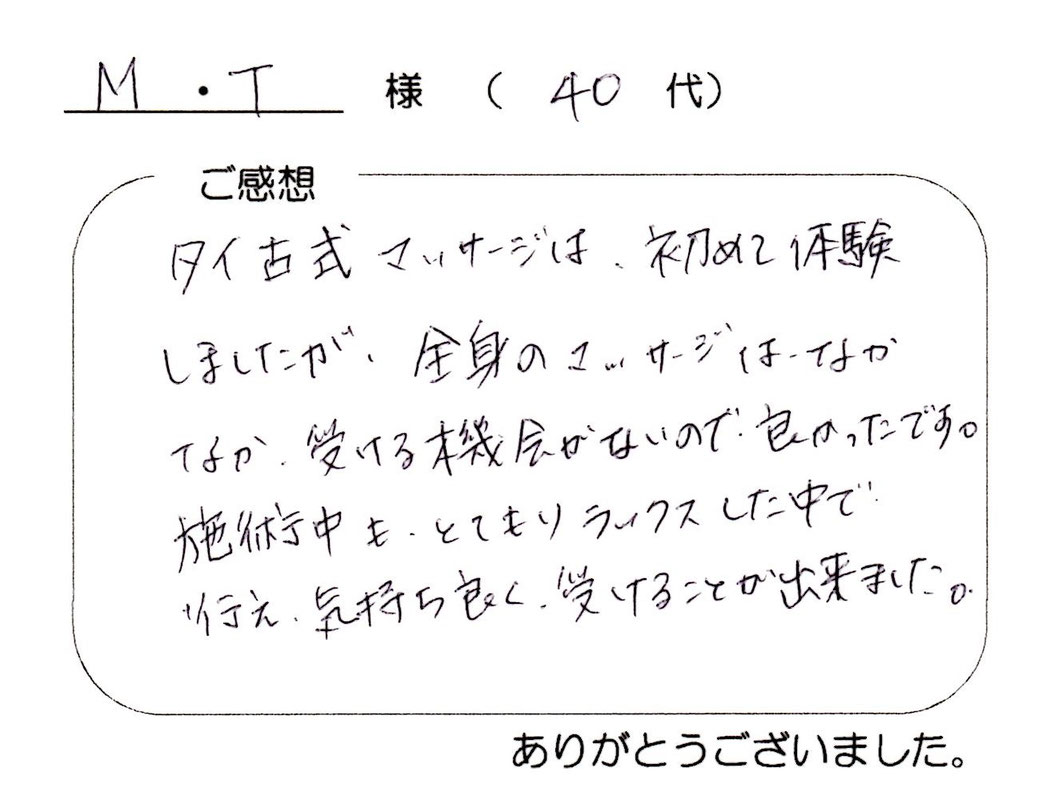 M・T 様 ( 40 代)
ご感想
タイ古式マッサージは、初めて体験
しましたが、全身のマッサージは、なか
なか、受ける機会がないので、良かったです。
施術中も、とてもリラックスした中で
行え、気持ち良く、受けることが出来ました。
ありがとうございました。